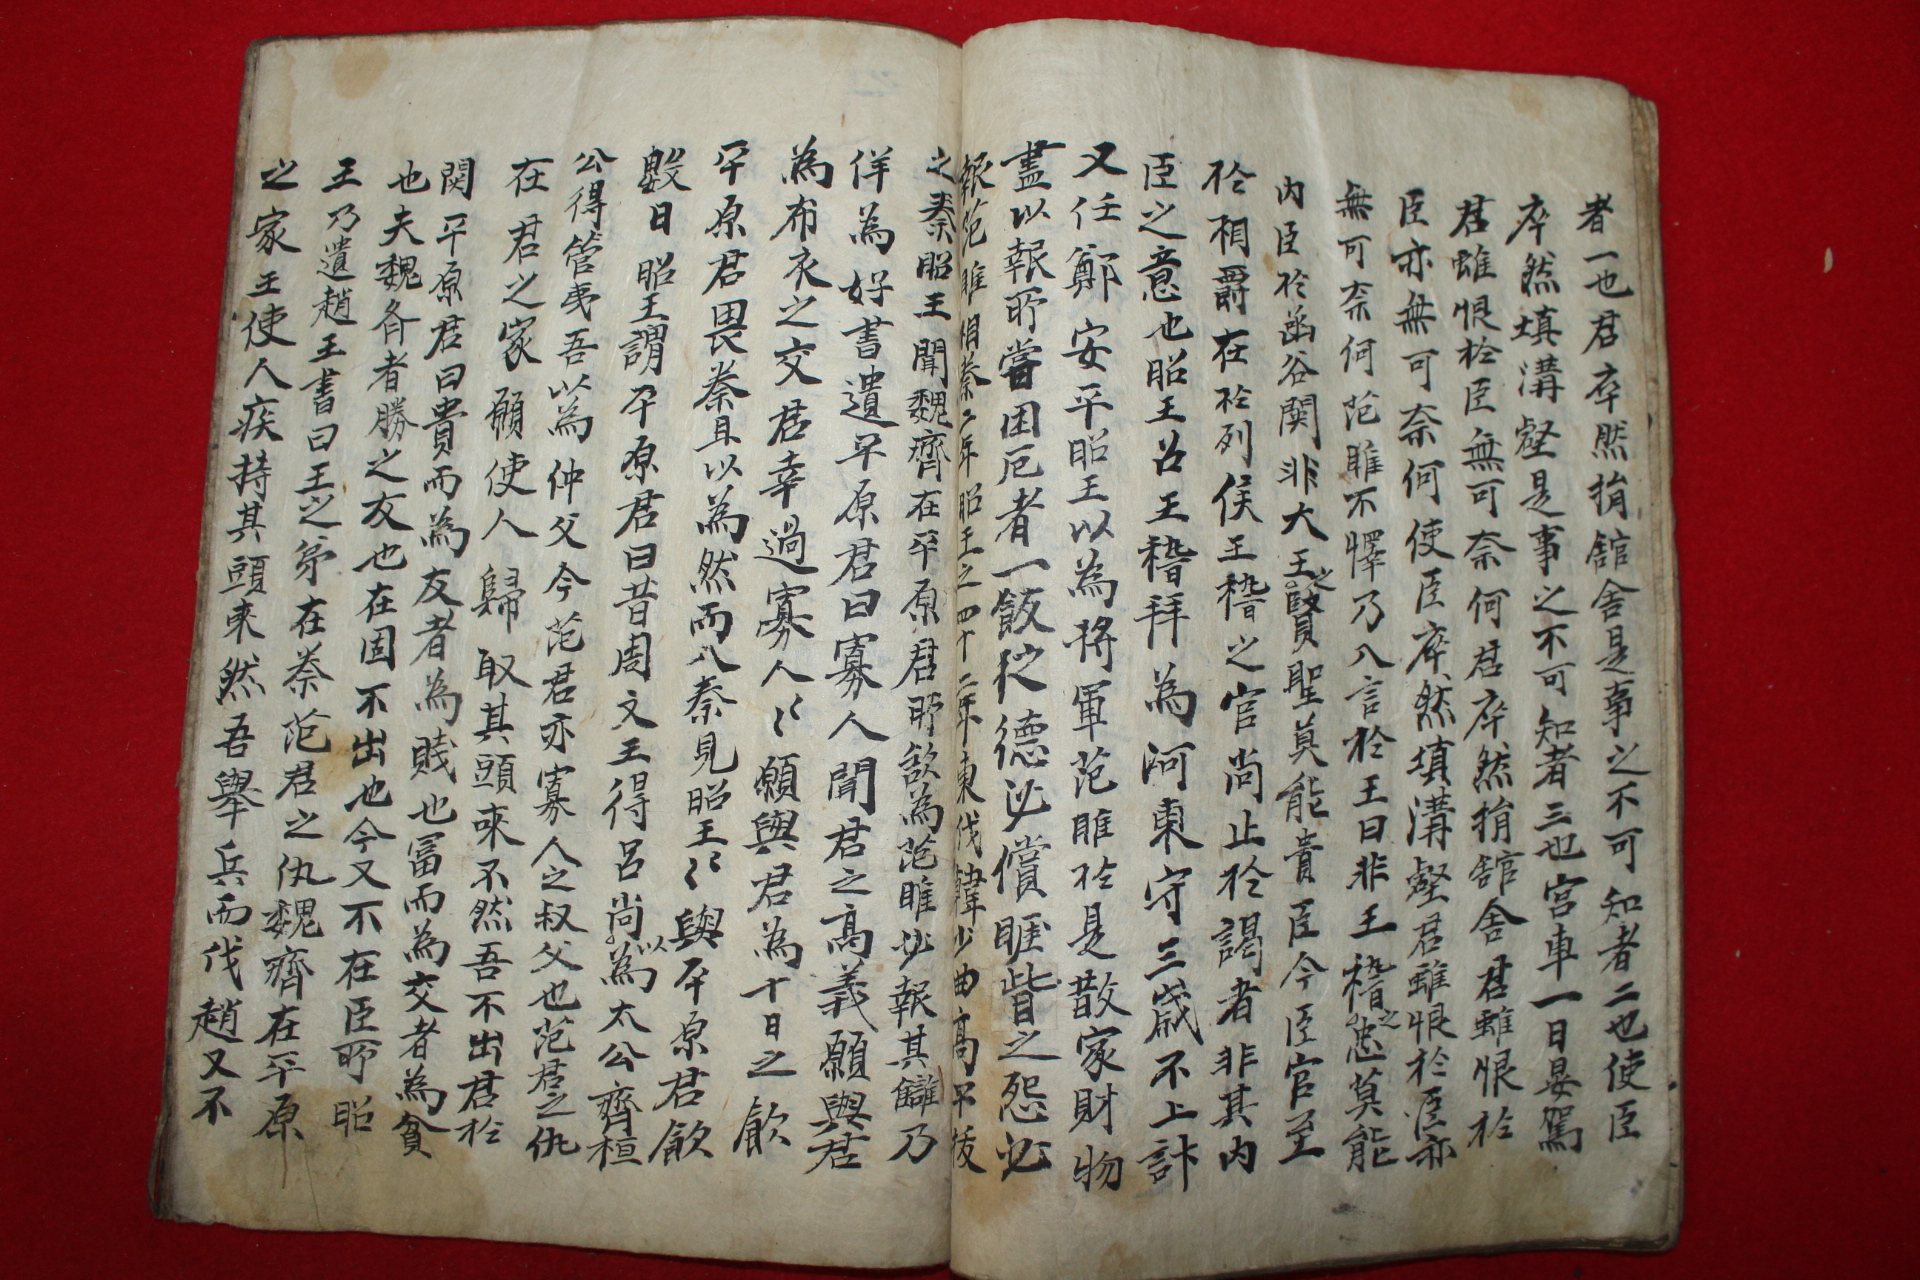 者一也君卒然捐舘舍是事之不可知者二也使臣
卒然填溝壑是事之不可知者三也宮車一日晏駕
君雖恨於臣無可奈何君卒然捐舘舍君雖恨於
臣亦無可奈何使臣卒然填溝壑君雖恨於臣亦
無可奈何范雎不懌乃入言於王曰非王稽之忠莫能
內臣於函谷関非大王之賢聖莫能貴臣今臣官至
於相爵在於列侯王稽之官尚止於謁者非其內
臣之意也昭王召王稽拜為河東守三歲不上計
又任鄭安平昭王以為將軍范雎於是散家財物
盡以報所嘗困厄者一飯之德必償睚眥之怨必
報范雎相秦二年昭王之四十二年東伐韓少曲高平拔
之秦昭王聞魏齊在平原君所欲為范雎必報其讎乃
佯為好書遺平原君曰寡人聞君之高義願與君
為布衣之交君幸過寡人〻願與君為十日之飲
平原君畏秦且以為然而入秦見昭王〻與平原君飲
數日昭王謂平原君曰昔周文王得呂尚以為太公齊桓
公得管夷吾以為仲父今范君亦寡人之叔父也范君之仇
在君之家願使人歸取其頭來不然吾不出君於
関平原君曰貴而為友者為賤也富而為交者為貧
也夫魏齐者勝之友也在固不出也今又不在臣所昭
王乃遺趙王書曰王之弟在秦范君之仇魏齊在平原
之家王使人疾持其頭來然吾舉兵而伐趙又不